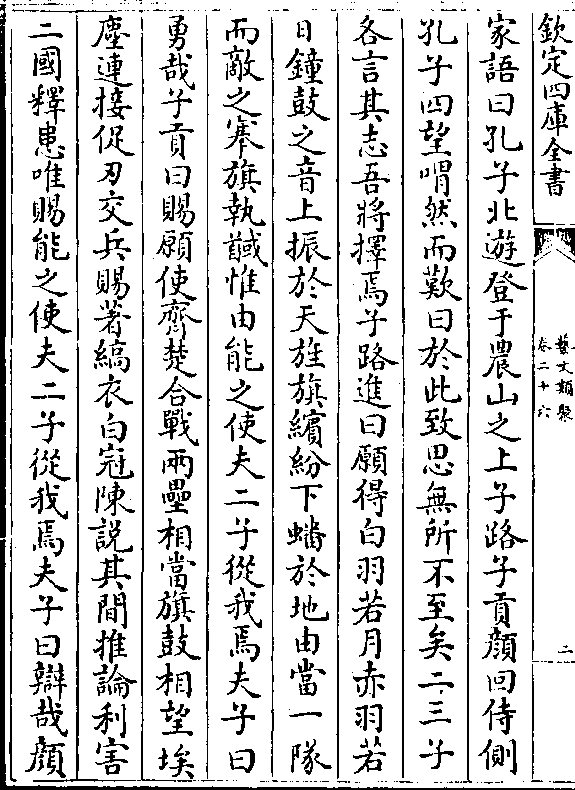 欽定四庫全書
藝文類聚
卷二十六
二
家語曰孔子北遊登于農山之上子路子貢顔回侍側
孔子四望喟然而歎曰於此致思無所不至矣二三子
各言其志吾將擇焉子路進曰願得白羽若月赤羽若
日鐘鼓之音上振於天旌旗繽紛下蟠於地由當一隊
而敵之搴旗執馘惟由能之使夫二子從我焉夫子曰
勇哉子貢曰賜願使齊楚合戰兩壘相當旗鼓相望埃
塵連接促刃交兵賜著縞衣白冠陳説其間推論利害
二國釋患唯賜能之使夫二子從我焉夫子曰辯哉顔